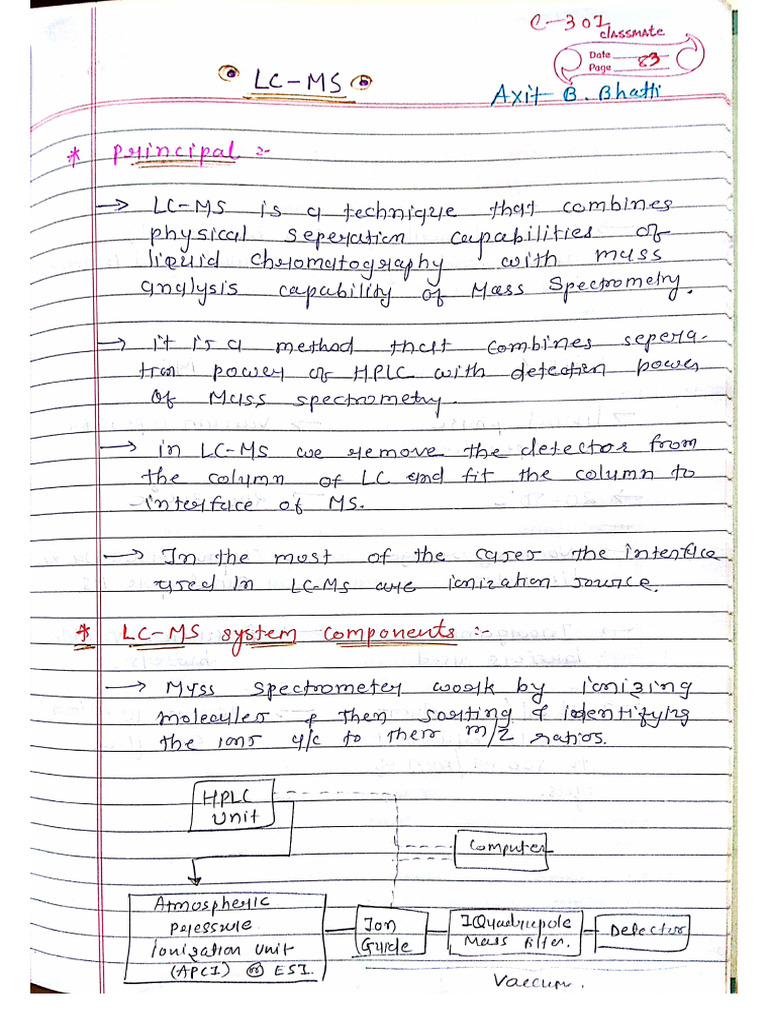 C-301
classmate
Date
Page 83
LC-MS
Axit B. Bhatti
* Principal :-
→ LC-MS is a technique that combines
physical seperation capabilities of
liquid chromatography with mass
analysis capability of Mass Spectrometry.
→ it is a method that combines sepera-
tion power of HPLC with detection power
of Mass spectrometry.
→ in LC-MS we remove the detector from
the column of LC and fit the column to
interface of MS.
→ In the most of the cases the interface
used in LC-MS are ionization source.
* LC-MS system components :-
→ Mass spectrometer work by ionizing
molecules & then sorting & identifying
the ions a/c to their m/z ratios.
HPLC
Unit
Computer
Atmospheric
pressure
ionization unit
(APCI) or ESI.
Ion
Guide
Quadrupole
Mass filter.
Detector
Vaccum.